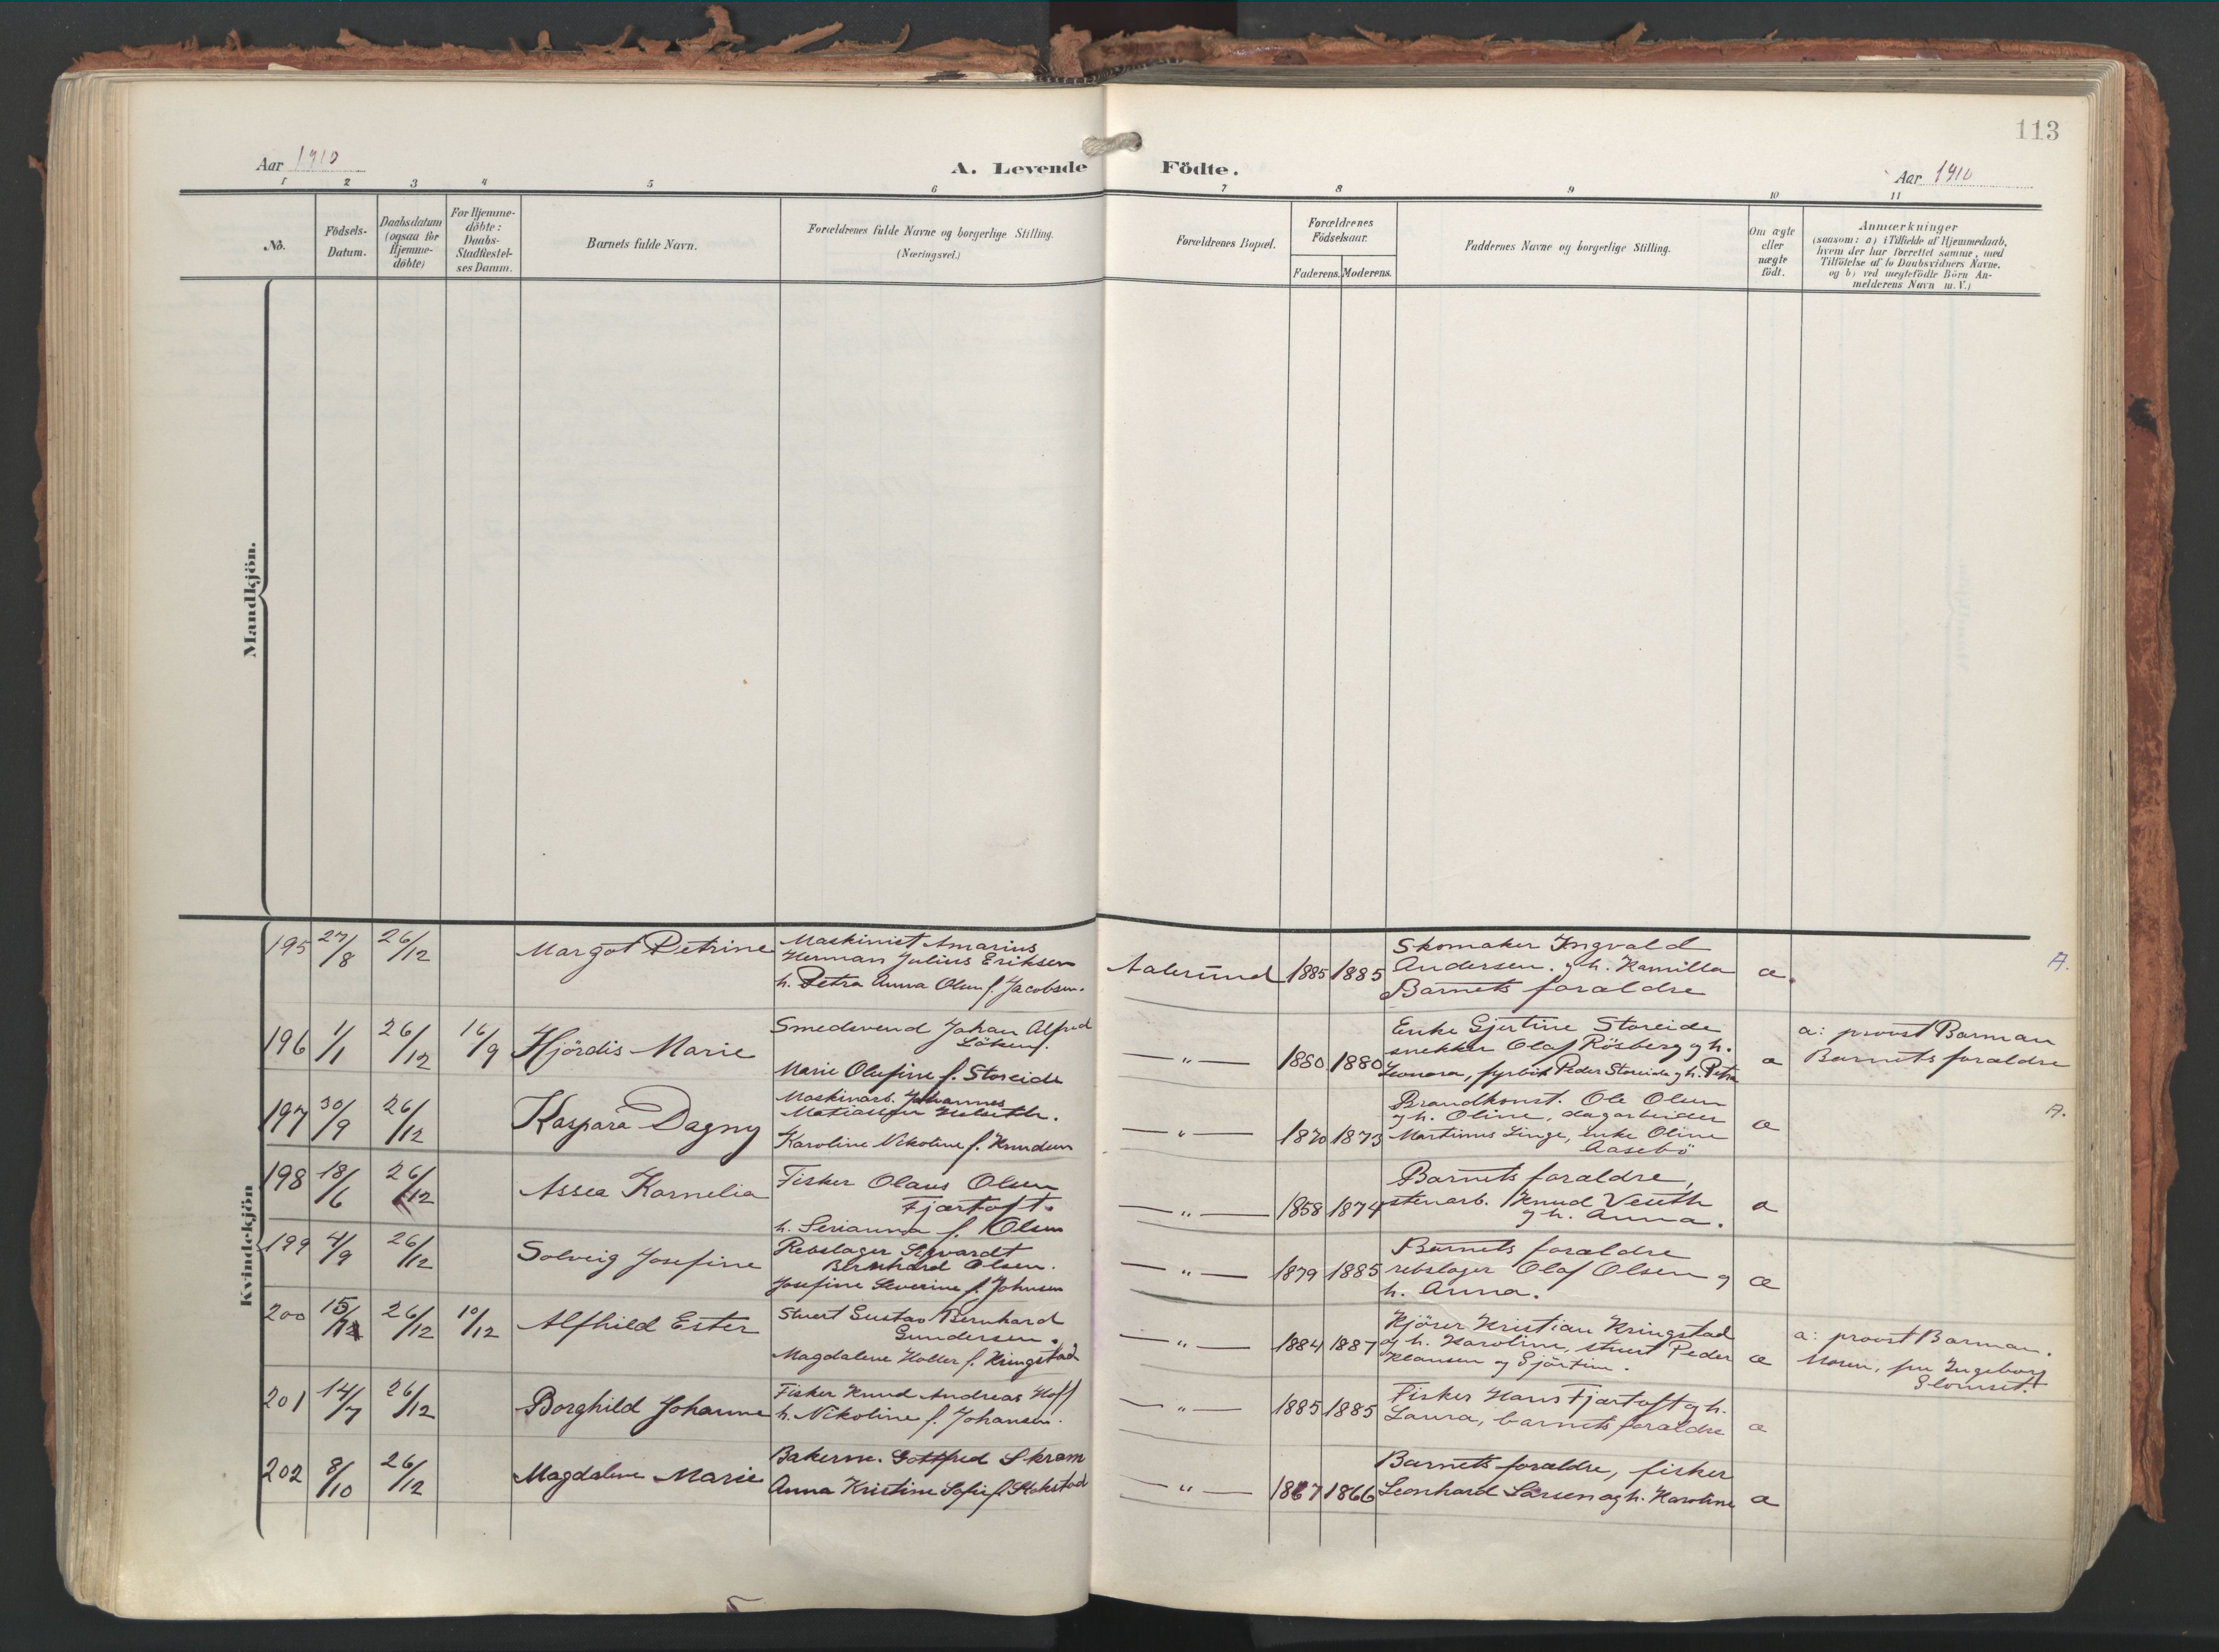 113
Aar 1910
A. Levende Födte.
Aar 1910
1 2 3 4 5 6 7 8 9 10 11
No.
Födsels-
Datum.
Daabsdatum
(ogsaa for
Hjemme-
döbte)
For Hjemme-
döbte:
Daabs-
Stadfæstel-
ses Datum.
Barnets fulde Navn.
Forældrenes fulde Navne og borgerlige Stilling.
(Næringsvei.)
Forældrenes Bopæl.
Forældrenes
Födselsaar.
Faderens. Moderens.
Faddernes Navne og borgerlige Stilling.
Om ægte
eller
uægte
födt.
Anmærkninger
(saasom: a) i Tilfælde af Hjemmedaab,
hvem der har forrettet samme, med
Tilföielse af to Daabsvidners Navne,
og b) ved uægtefödte Börn An-
melderens Navn m. V.)
Mandkjön.
Kvindekjön
195 27/8 26/12 Margot Petrine
Maskinist Amarius
Herman Julius Eriksen
h. Petra Anna Olsen f. Jacobsen.
Aalesund 1885 1885
Skomaker Ingvald
Andersen. og h. Kamilla
Barnets forældre
æ. A.
196 1/1 26/12 16/9 Hjördis Marie
Smedsvend Johan Alfred
Marie Olufine f. Storeide
— " — 1880 1880
Enke Gjertine Storeide
snekker Olaf Rösberg og h.
Leonora, fyrböt Peder Storeide og h. Petra
æ
a: provst Barman
Barnets forældre
197 30/9 26/12 Kaspara Dagny
Maskinarb. Johannes
Karoline Nikoline f. Knudsen
— " — 1870 1873
Brandkonst. Ole Olsen
og h. Oline, dagarbeider
Martinus Linge, enke Oline
Aasebö
æ A.
198 18/6 26/12 Assea Kornelia
Fisker Olaus Olsen
Fjærtoft.
h. Serianna f. Olsen
— " — 1858 1874
Barnets forældre,
stenarb. Knud Veseth
og h. Anna.
æ
199 4/9 26/12 Solveig Josefine
Rebslager Sigvardt
Bernhard Olsen.
Josefine Severine f. Johnsen
— " — 1879 1885
Barnets forældre
rebslager Olaf Olsen og
h. Anna.
æ
200 15/12 26/12 10/12 Alfhild Ester
Stuert Gustav Bernhard
Gundersen.
Magdalene Holter f. Kringstad
— " — 1884 1887
Kjörer Kristian Kringstad
og h. Karoline, stuert Peder
Klausen og Gjörtine.
æ
a: provst Barman.
Moren, fru Ingeborg
Slomset.
201 14/7 26/12 Borghild Johanne
Fisker Knud Andreas Hoff
h. Nikoline f. Johansen.
— " — 1885 1885
Fisker Hans Fjærtoft og h.
Laura, barnets forældre
æ
202 8/10 26/12 Magdalene Marie
Bakerm. Gottfred Skram
Anna Kristine Sofie f. Stokstad
— " — 1867 1866
Barnets forældre, fisker
Leonhard Larsen og h. Karoline
æ